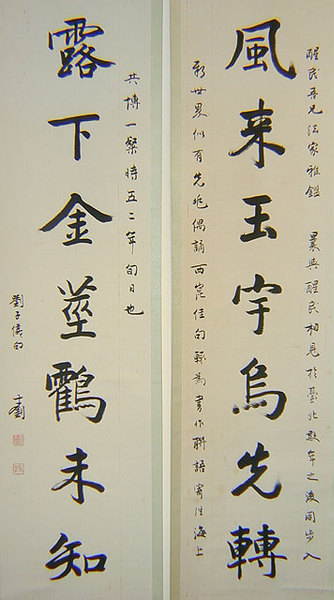 醒民吾兄法家雅鑑 曩與醒民相見於臺北數年之後同步入
風来玉宇烏先轉
新世界似有先兆偶誦西崑佳句輒為書作聯語寄往海上
共博一粲時五二年旬日也
露下金莖鸖未知
劉子